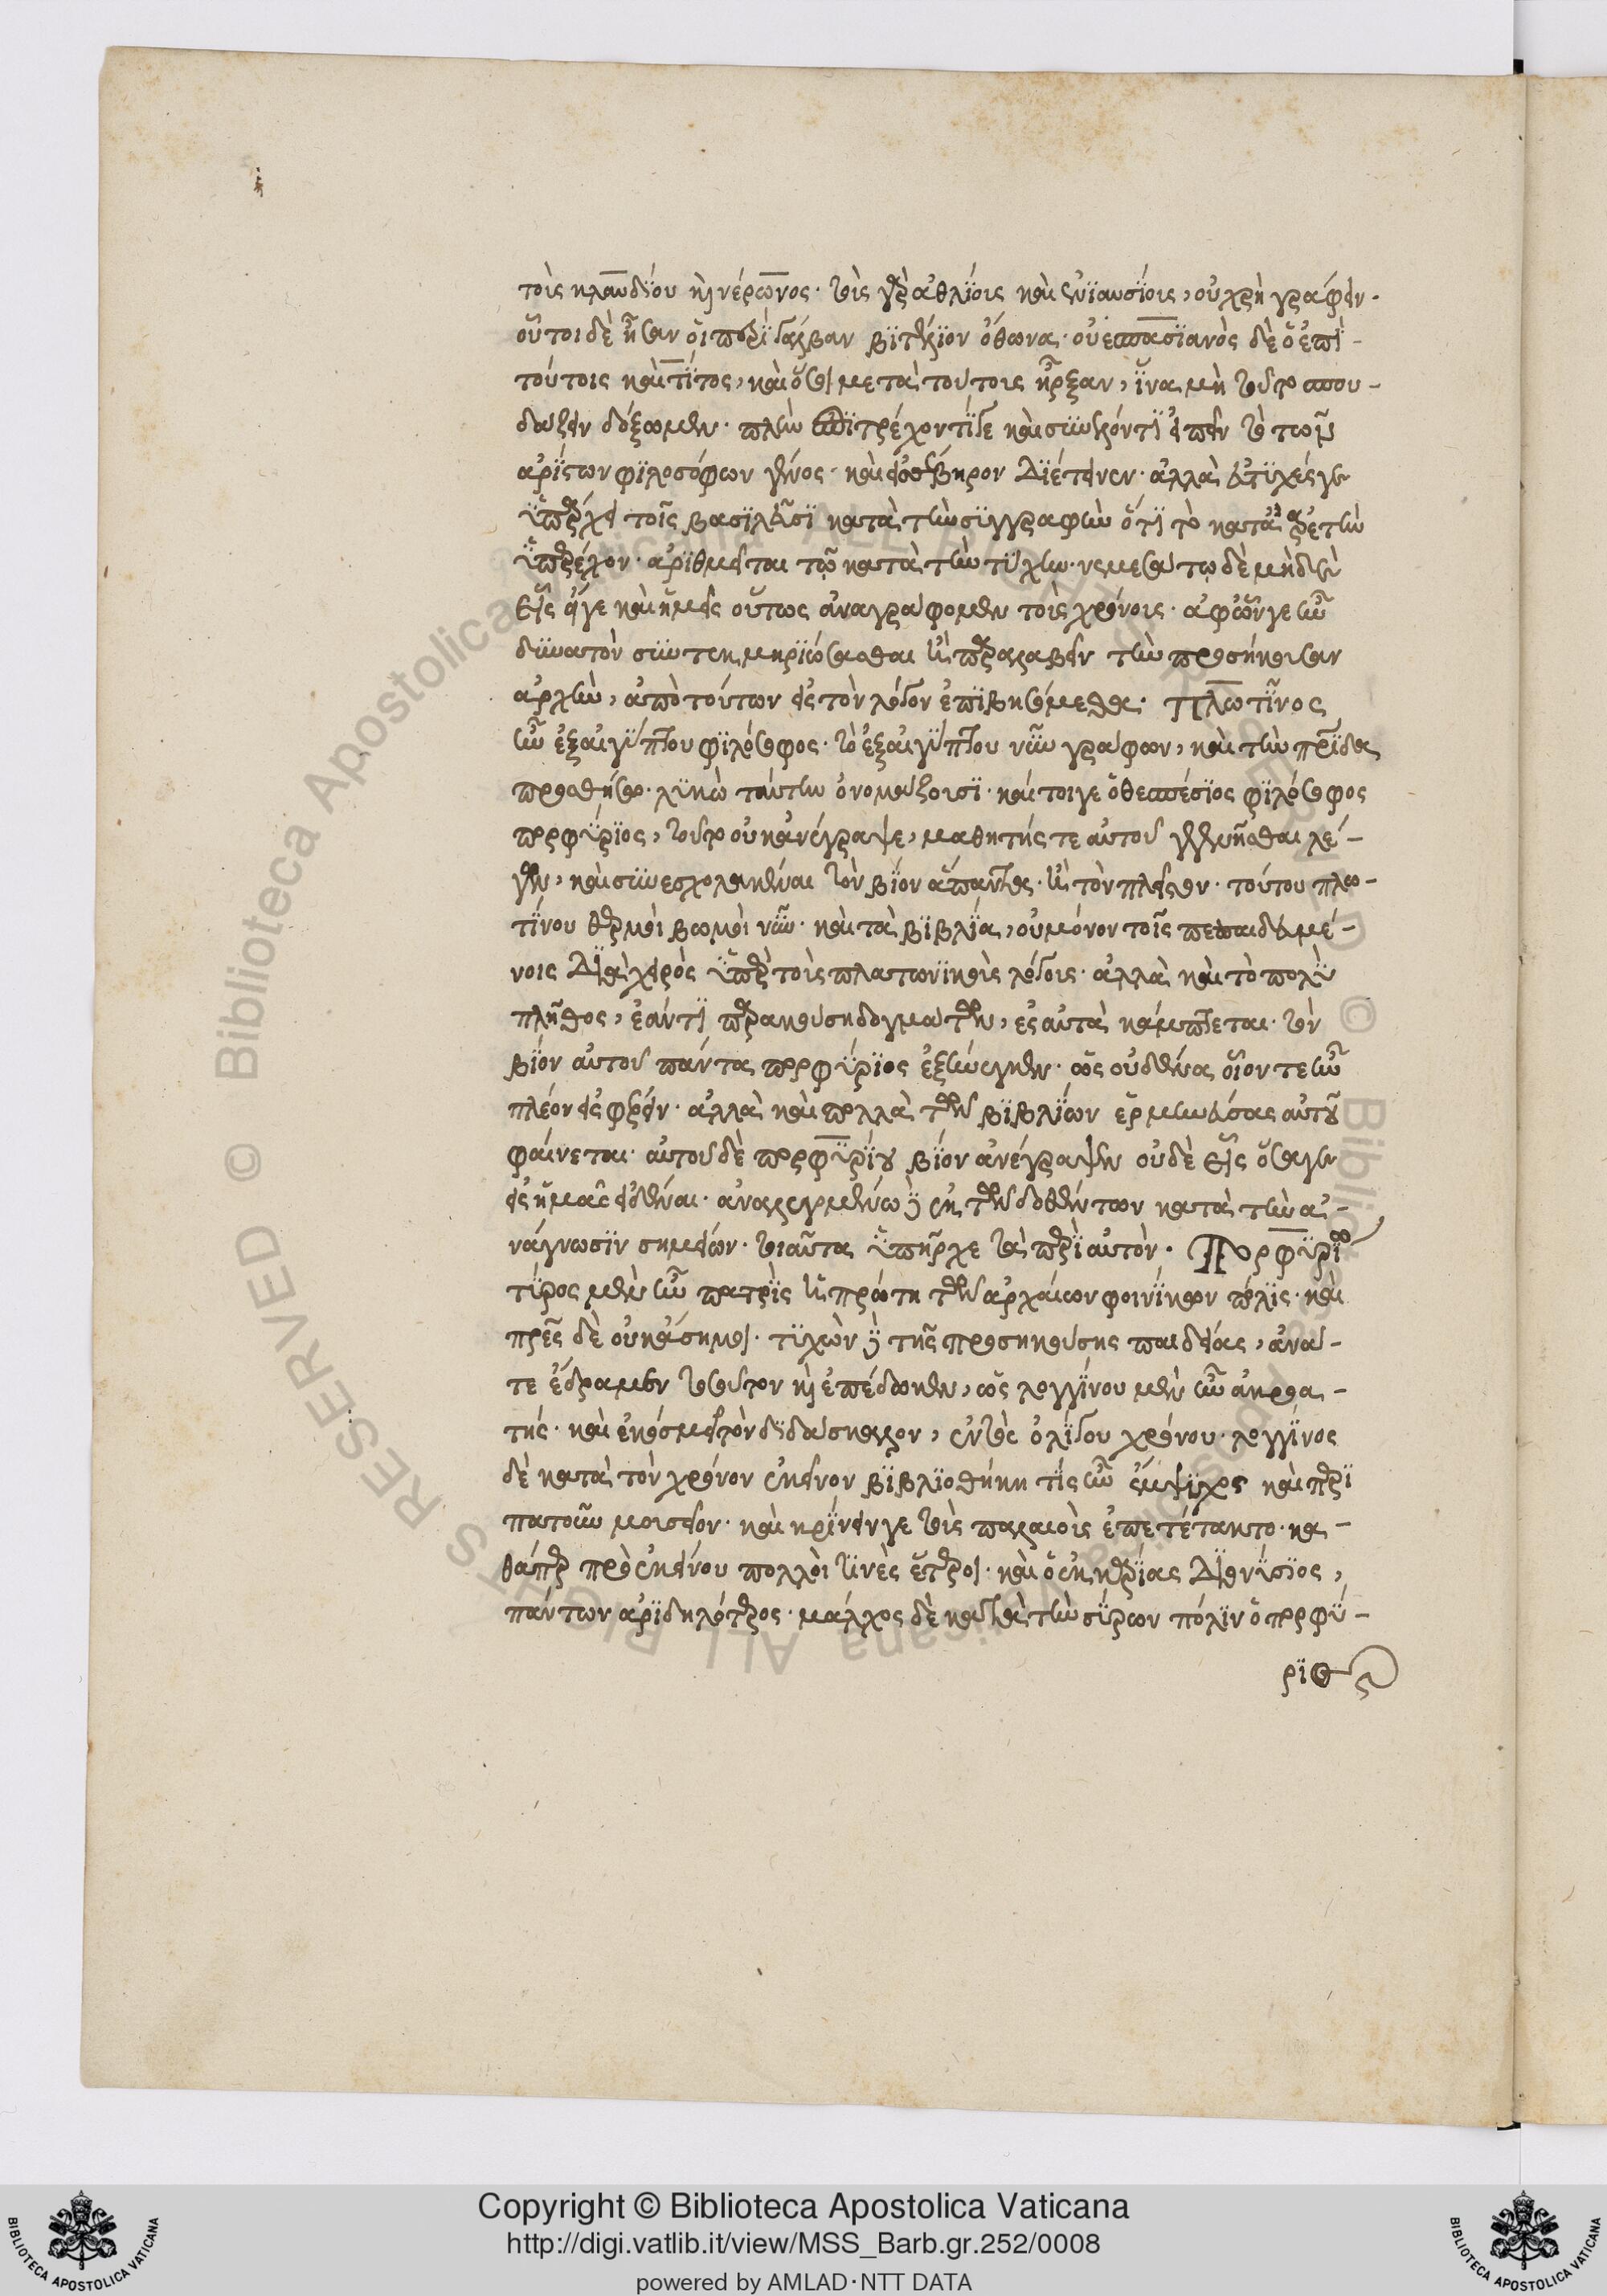 τοὺς κλαυδίου καὶ νέρωνος· τοὺς γὰρ ἀθλΐους καὶ ἐνϊαυσΐους, οὐ χρὴ γράφειν·
οὗτοι δὲ ἦσαν οἱ περὶ γάλβαν βϊτέλϊον ὄθωνα· οὐεσπασϊανὸς δὲ ὁ ἐπῒ-
τούτοις καὶ τΐτος, καὶ ὅσοι μετὰ τούτους ἦρξαν, ἵνα μὴ τοῦτο σπου-
δάζειν δόξωμεν· πλὴν ἐπϊτρέχοντΐγε καὶ συνελόντϊ εἰπεῖν τὸ τῶν
ἀρΐστων φϊλοσόφων γένος· καὶ εἰς σεβῆρον διέτεινεν· ἀλλὰ εὐτϋχές γε
ὑπάρχει τοῖς βασϊλεῦσϊ κατὰ τὴν συγγραφὴν ὅτϊ τὸ κατὰ ἀρετὴν
ὑπερέχον· ἀρϊθμεῖται τῷ κατὰ τὴν τύχην· νεμεσάτω δὲ μὴδὲ
εἷς εἴγε καὶ ἡμεῖς οὕτως ἀναγράφομεν τοὺς χρόνους· ἀφ' ὧν γε ἦν
δυνατὸν συντεκμηρϊώσασθαι ἢ παραλαβεῖν τὴν προσήκουσαν
ἀρχὴν, ἀπὸ τούτων εἰς τὸν λόγον ἐπϊβησόμεθα· Πλωτῖνος
ἦν ἐξ αἰγύπτου φϊλόσοφος· τὸ ἐξ αἰγύπτου νῦν γράφων, καὶ τὴν πατρΐδα
προσθήσω· λϋκὼ ταύτην ὀνομάζουσϊ· καίτοιγε ὁ θεσπέσϊος φϊλόσοφος
πορφύρϊος, τοῦτο οὐκ ἀνέγραψε, μαθητής τε αὐτοῦ γεγενῆσθαι λέ-
γων, καὶ συνεσχολακέναι τὸν βΐον ἅπαντα· ἢ τὸν πλεῖστον· τούτου πλω-
τΐνου θερμοὶ βωμοὶ νῦν· καὶ τὰ βϊβλΐα, οὐ μόνον τοῖς πεπαιδευμέ-
νοις διὰ χειρὸς ὑπὲρ τοὺς πλατωνϊκοὺς λόγους· ἀλλὰ καὶ τὸ πολὺ
πλῆθος, ἐάν τϊ παρακούσῃ δογμάτων, ἐς αὐτὰ κάμπτεται· τὸν
βΐον αὐτοῦ πάντα πορφύρϊος ἐξήνεγκεν· ὡς οὐδένα οἷόν τε ἦν
πλέον εἰσφέρειν· ἀλλὰ καὶ πολλὰ τῶν βϊβλΐων ἑρμηνεύσας αὐτοῦ
φαίνεται· αὐτοῦ δὲ πορφϋρΐου βΐον ἀνέγραψεν οὐδὲ εἷς ὅσα γε
εἰς ἡμᾶς εἰδέναι· ἀναλεγομένῳ δὲ ἐκ τῶν δοθέντων κατὰ τὴν ἀ-
νάγνωσϊν σημείων· τοιαῦτα ὑπῆρχε τὰ περῒ αὐτόν· Πορφϋρΐῳ
τύρος μὲν ἦν πατρὶς ἡ πρώτη τῶν ἀρχαίων φοινΐκων πόλϊς· καὶ
πατέρες δὲ οὐκ ἄσημοι· τϋχὼν δὲ τῆς προσηκούσης παιδείας, ἀνά-
τε ἔδραμεν τοσοῦτον καὶ ἐπέδωκεν, ὡς λογγΐνου μὲν ἦν ἀκροα-
τής· καὶ ἐκόσμει τὸν δϊδάσκαλον, ἐντὸς ὀλΐγου χρόνου· λογγῖνος
δὲ κατὰ τὸν χρόνον ἐκεῖνον βϊβλϊοθήκη τΐς ἦν ἔμψϋχος καὶ περϊ
πατοῦν μουσεῖον· καὶ κρΐνειν γε τοὺς παλαιοὺς ἐπετέτακτο· κα-
θάπερ πρὸ ἐκείνου πολλοὶ τινὲς ἕτεροι· καὶ ὁ ἐκ καρΐας διονύσϊος,
πάντων ἀρϊδηλότερος· μάλχος δὲ κατὰ τὴν σύρων πόλϊν ὁ πορφύ-
ρϊος
Copyright © Biblioteca Apostolica Vaticana
http://digi.vatlib.it/view/MSS_Barb.gr.252/0008
powered by AMLAD·NTT DATA